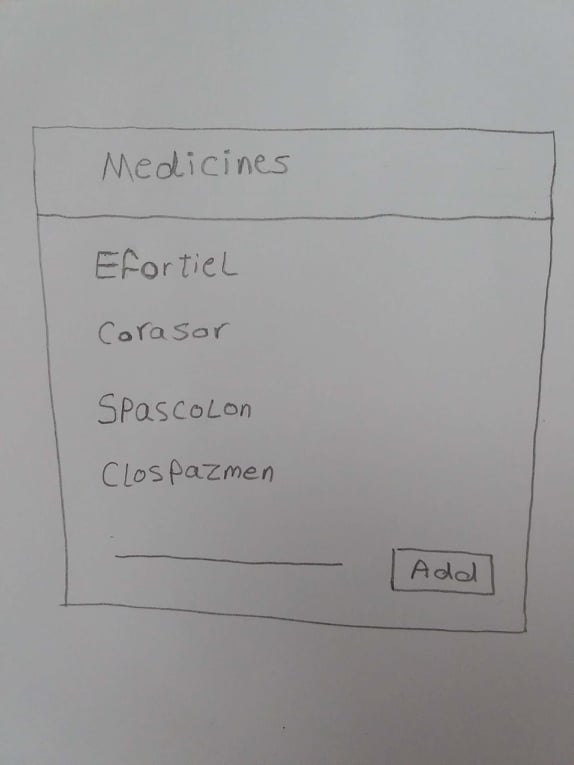 Medicines
Efortiel
Corasor
Spascolon
Clospazmen
Add